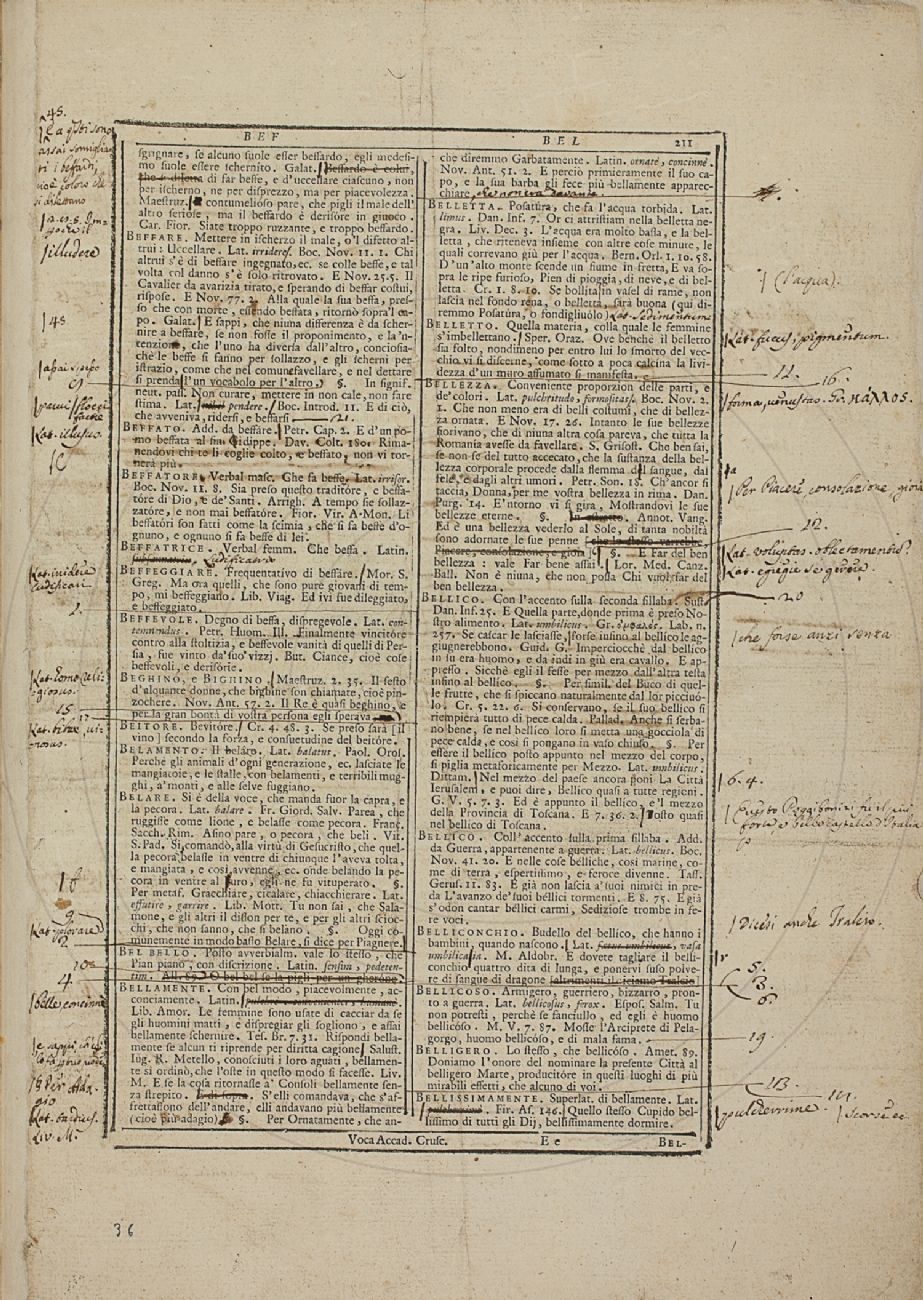 BEF
BEL 211
sgignare, se alcuno suole esser beffardo, egli medesi-
mo suole essere schernito. Galat. Beffardo è colui,
che si diletta di far beffe, e d'uccellare ciascuno, non
per ischerno, ne per disprezzo, ma per piacevolezza.
Maestruz. contumelioso pare, che pigli il male dell'
altro seriose, ma il beffardo è derisore in giuoco.
Car. Fior. Siate troppo ruzzante, e troppo beffardo.
BEFFARE. Mettere in ischerzo il male, o'l difetto al-
trui: Uccellare. Lat. irridere. Boc. Nov. 11. 1. Chi
altrui s'è di beffare ingegnato, ec. se colle beffe, e tal
volta col danno s'è solo ritrovato. E Nov. 25. 5. Il
Cavalier da avarizia tirato, e sperando di beffar costui,
rispose. E Nov. 77. 2. Alla quale la sua beffa, pres-
so che con morte, essendo beffata, ritornò sopra'l ca-
po. Galat. E sappi, che niuna differenza è da scher-
nire a beffare, se non fosse il proponimento, e la'n-
tenzione, che l'uno ha diversa dall'altro, conciosia-
chè le beffe si fanno per sollazzo, e gli scherni per
istrazio, come che nel comune favellare, e nel dettare
si prenda l'un vocabolo per l'altro. §. In signif.
neut. pass. Non curare, mettere in non cale, non fare
stima. Lat. pendere. Boc. Introd. 11. E di ciò,
che avveniva, ridersi, e beffarsi
BEFFATO. Add. da beffare. Petr. Cap. 2. E d'un po-
mo beffata al fin Cidippe. Dav. Colt. 180. Rima-
nendovi chi te li coglie colto, e beffato, non vi tor-
nerà più.
BEFFATORE. Verbal masc. Che fa beffe. Lat. irrisor.
Boc. Nov. 11. 8. Sia preso questo traditore, e beffa-
tóre di Dio, e de' Santi. Arrigh. A tempo sie sollaz-
zatóre, e non mai beffatóre. Fior. Vir. A. Mon. Li
beffatóri son fatti come la scimia, che si fa beffe d'o-
gnuno, e ognuno si fa beffe di lei.
BEFFATRICE. Verbal femm. Che beffa. Latin.
BEFFEGGIARE. Frequentativo di beffare. Mor. S.
Greg. Ma ora quelli, che sono puré giovani di tem-
po, mi beffeggiano. Lib. Viag. Ed ivi fue dileggiato,
e beffeggiato.
BEFFEVOLE. Degno di beffa, dispregevole. Lat. con-
temnendus. Petr. Huom. Ill. Finalmente vincitóre
contro alla stoltizia, e beffevole vanità di quelli di Per-
sia, fue vinto da' suo' vizzj. But. Ciance, cioè cose
beffevoli, e derisórie.
BEGHINO, e BIGHINO. Maestruz. 2. 35. Il sesto
d'alquante donne, che bighine son chiamate, cioè pin-
zochere. Nov. Ant. 57. 2. Il Re è quasi beghino, e
per la gran bontà di vostra persona egli sperava
BEITORE. Bevitóre. Cr. 4. 48. 3. Se preso sarà [il
vino] secondo la forza, e consuetudine del beitóre.
BELAMENTO. Il beláre. Lat. balatus. Paol. Oros.
Perchè gli animali d'ogni generazione, ec. lasciate le
mangiatoie, e le stalle, con belamenti, e terribili mug-
ghi, a' monti, e alle selve fuggiano.
BELARE. Si è della voce, che manda fuor la capra, e
la pecora. Lat. balare. Fr. Giord. Salv. Parea, che
ruggisse come lione, e belasse come pecora. Franc.
Sacch. Rim. Asino pare, o pecora, che beli. Vit.
S. Pad. Si comandò, alla virtù di Gesucristo, che quel-
la pecora belasse in ventre di chiunque l'aveva tolta,
e mangiata, e così avvenne, ec. onde belando la pe-
cora in ventre al furo, egli ne fu vituperato. §.
Per metaf. Gracchiare, cicalare, chiacchierare. Lat.
effutire, garrire. Lib. Mott. Tu non sai, che Sala-
mone, e gli altri il disson per te, e per gli altri scioc-
chi, che non sanno, che si belano. §. Oggi co-
munemente in modo basso Belare, si dice per Piagnere.
BEL BELLO. Posto avverbialm. vale lo stesso, che
Pian piano, con discrizione. Latin. sensim, pedeten-
tim.
BELLAMENTE. Con bel modo, piacevolmente, ac-
conciamente. Latin.
Lib. Amor. Le femmine sono usate di cacciar da se
gli huomini matti, e dispregiar gli sogliono, e assai
bellamente schernire. Tes. Br. 7. 31. Rispondi bella-
mente se alcun ti riprende per diritta cagione. Salust.
Iug. R. Metello, conosciuti i loro aguati, bellamen-
te sì ordinò, che l'oste in questo modo si facesse. Liv.
M. E se la cosa ritornasse a' Consoli bellamente sen-
za strepito. E di sopra. S'elli comandava, che s'af-
frettassono dell'andare, elli andavano più bellamente
(cioè più adagio) §. Per Ornatamente, che an-
che diremmo Garbatamente. Latin. ornatè, concinnè.
Nov. Ant. 51. 2. E perciò primieramente il suo ca-
po, e la sua barba gli fece più bellamente apparec-
chiare
BELLETTA. Posatúra, che fa l'acqua torbida. Lat.
limus. Dan. Inf. 7. Or ci attristiam nella belletta ne-
gra. Liv. Dec. 3. L'acqua era molto bassa, e la bel-
letta, che riteneva insieme con altre cose minute, le
quali correvano giù per l'acqua. Bern. Orl. 1. 10. 58.
D'un'alto monte scende un fiume in fretta, E va so-
pra le ripe furioso, Pien di pioggia, di neve, e di bel-
letta. Cr. 1. 8. 10. Se bollita in vasel di rame, non
lascia nel fondo réna, o belletta, sarà buona (qui di-
remmo Posatúra, o fondigliuólo) Lat. Sedimentum
BELLETTO. Quella materia, colla quale le femmine
s'imbellettano. Sper. Oraz. Ove benchè il belletto
sia folto, nondimeno per entro lui lo smorto del vec-
chio vi si discerne, come sotto a poca calcina la livi-
dezza d'un muro affumato si manifesta.
BELLEZZA. Conveniente proporzion delle parti, e
de' colori. Lat. pulchritudo, formositas. Boc. Nov. 2.
1. Che non meno era di belli costumi, che di bellez-
za ornata. E Nov. 17. 26. Intanto le sue bellezze
fiorivano, che di niuna altra cosa pareva, che tutta la
Romanìa avesse da favellare. S. Grisost. Che ben sai,
se non se del tutto accecato, che la sustanza della bel-
lezza corporale procede dalla flemma del sangue, dal
fele, e dagli altri umori. Petr. Son. 18. Ch'ancor si
taccia, Donna, per me vostra bellezza in rima. Dan.
Purg. 14. E'ntorno vi si gira, Mostrandovi le sue
bellezze eterne. §. Annot. Vang.
Ed è una bellezza vederlo al Sole, di tanta nobiltà
sono adornate le sue penne
§. E Far del ben
bellezza: vale Far bene assai. Lor. Med. Canz.
Ball. Non è niuna, che non possa Chi vuol far del
ben bellezza.
BELLICO. Con l'accento sulla seconda sillaba. Sust.
Dan. Inf. 25. E Quella parte, donde prima è preso No-
stro alimento. Lat. umbilicus. Gr. ὀμφαλός. Lab. n.
257. Se cascar le lasciasse, forse infino al bellico le ag-
giugnerebbono. Guid. G. Imperciocchè dal bellico
in su era huomo, e da indi in giù era cavallo. E ap-
presso. Sicchè egli il fesse per mezzo dall'altra testa
infino al bellico. §. Per simil. del Buco di quel-
le frutte, che si spiccano naturalmente dal lor picciuó-
lo. Cr. 5. 22. 6. Si conservano, se il suo bellico si
riempierà tutto di pece calda. Pallad. Anche si serba-
no bene, se nel bellico loro si metta una gocciola di
pece calda, e così si pongano in vaso chiuso. §. Per
essere il bellico posto appunto nel mezzo del corpo,
si piglia metaforicamente per Mezzo. Lat. umbilicus.
Dittam. Nel mezzo del paese ancora poni La Città
Ierusalem, e puoi dire, Bellico quasi a tutte regioni.
G. V. 5. 7. 3. Ed è appunto il bellico, e'l mezzo
della Provincia di Toscana. E 7. 36. 2. Posto quasi
nel bellico di Toscana.
BELLICO. Coll'accento sulla prima sillaba. Add.
da Guerra, appartenente a guerra. Lat. bellicus. Boc.
Nov. 41. 20. E nelle cose bélliche, così marine, co-
me di terra, espertissimo, e feroce divenne. Tass.
Gerus. 11. 83. E già non lascia a' suoi nimici in pre-
da L'avanzo de' suoi béllici tormenti. E 8. 75. E già
s'odon cantar béllici carmi, Sediziose trombe in fe-
re voci.
BELLICONCHIO. Budello del bellico, che hanno i
bambini, quando nascono. Lat. vasa
umbilicalia. M. Aldobr. E dovete tagliare il belli-
conchio quattro dita di lunga, e ponervi suso polve-
re di sangue di dragone
BELLICOSO. Armigero, guerriero, bizzarro, pron-
to a guerra. Lat. bellicosus, ferox. Espos. Salm. Tu
non potresti, perchè se fanciullo, ed egli è huomo
bellicóso. M. V. 7. 87. Mosse l'Arciprete di Pela-
gorgo, huomo bellicóso, e di mala fama.
BELLIGERO. Lo stesso, che bellicóso. Amet. 89.
Doniamo l'onore del nominare la presente Città al
belligero Marte, producitore in questi luoghi di più
mirabili effetti, che alcuno di voi.
BELLISSIMAMENTE. Superlat. di bellamente. Lat.
Fir. As. 146. Quello stesso Cupido bel-
lissimo di tutti gli Dij, bellissimamente dormire.
Voca Accad. Crusc. E e BEL-
48.
illudere
48
Lat. illusus.
15
12
9
2
10
4
Lat. tardius.
Liv. M.
(l'acqua).
Lat. fucus, pigmentum.
11.
16.
forma, venustas. Gr. κάλλος.
Per Piacere consolazione gioia
12.
Lat. voluptas. oblectamentum.
20
che forse anzi senza
6. 4.
Dicesi anche Tralcio.
5.
3.
6
19
13
14.
pulcherrime.
36